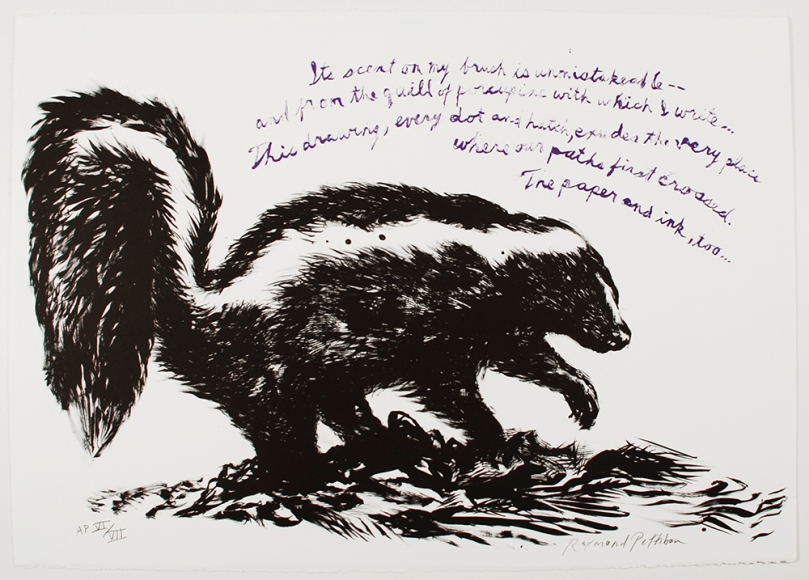 Its scent on my brush is unmistakeable--
and from the quill of porcupine with which I write...
This drawing, every dot and hatch, exudes the very place
where our paths first crossed.
The paper and ink, too...
A.P. VI/VII
Raymond Pettibon